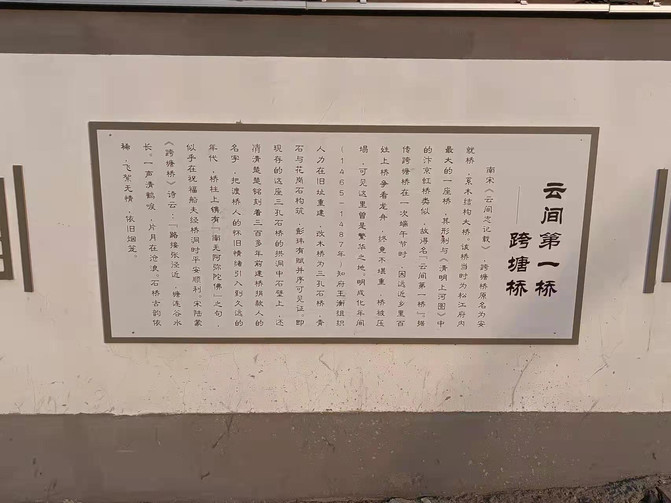 云间第一桥
——跨塘桥
南宋《云间之记载》,跨塘桥原名为安
就桥,系木结构大桥。该桥当时为松江府内
最大的一座桥,其形制与《清明上河图》中
的汴京虹桥类似,故得名“云间第一桥”。据
传跨塘桥在一次端午节时,因远近乡里百
姓上桥争看龙舟,终竟不堪重,桥被压
塌,可见这里曾是繁华之地。明成化年间
(1465-1487年)知府王衡组织
人力在旧址重建,改木桥为三孔石桥,青
石与花岗石构筑,彭玮有赋并序可见证。即
现存的这座三孔石桥的拱洞中石壁上,还
清清楚楚铭刻着三百多年前建桥捐款人的
名字,把渡桥人的怀旧情绪引入到久远的
年代,桥柱上镌有“南无阿弥陀佛”之句,
似乎在祝福船夫经桥洞时平安顺利。宋陆蒙
《跨塘桥》诗云:“路接张泾近,塘连谷水
长。一声清鹤唳,片月在沧浪。石桥古韵依
稀,飞絮无情,依旧烟笼。